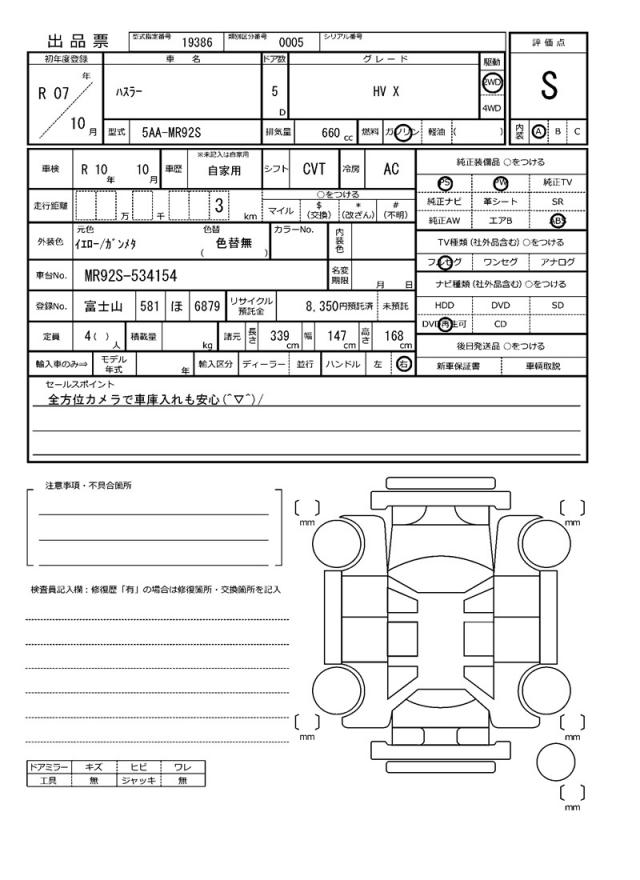 出品票 型式指定番号 19386 類別区分番号 0005 シリアル番号
評価点
S
内装 A B C
初年度登録 車名 ドア数 グレード 駆動
R 07 年 10 月 ハスラー 5 D HV X 2WD 4WD
型式 5AA-MR92S 排気量 660 cc 燃料 ガソリン 軽油 ( )
車検 R 10 年 10 月 車歴 ※未記入は自家用 自家用 シフト CVT 冷房 AC
走行距離 万 千 3 km ○をつける
マイル $(交換) *(改ざん) #(不明)
外装色 元色 イエロー/ガンメタ 色替 ( 色替無 ) カラーNo. 内装色
車台No. MR92S-534154 名変期限 月 日
登録No. 富士山 581 ほ 6879 リサイクル預託金 8,350円預託済 未預託
定員 4( ) 人 積載量 kg 諸元 長さ 339 cm 幅 147 cm 高さ 168 cm
輸入車のみ⇒ モデル年式 年 輸入区分 ディーラー 並行 ハンドル 左 右
純正装備品 ○をつける
PS PW 純正TV
純正ナビ 革シート SR
純正AW エアB ABS
TV種類 (社外品含む) ○をつける
フルセグ ワンセグ アナログ
ナビ種類 (社外品含む) ○をつける
HDD DVD SD
DVD再生可 CD
後日発送品 ○をつける
新車保証書 車輌取説
セールスポイント
全方位カメラで車庫入れも安心(^▽^)/
注意事項・不具合箇所
検査員記入欄:修復歴「有」の場合は修復箇所・交換箇所を記入
ドアミラー キズ ヒビ ワレ
工具 無 ジャッキ 無
mm
mm
mm
mm
mm